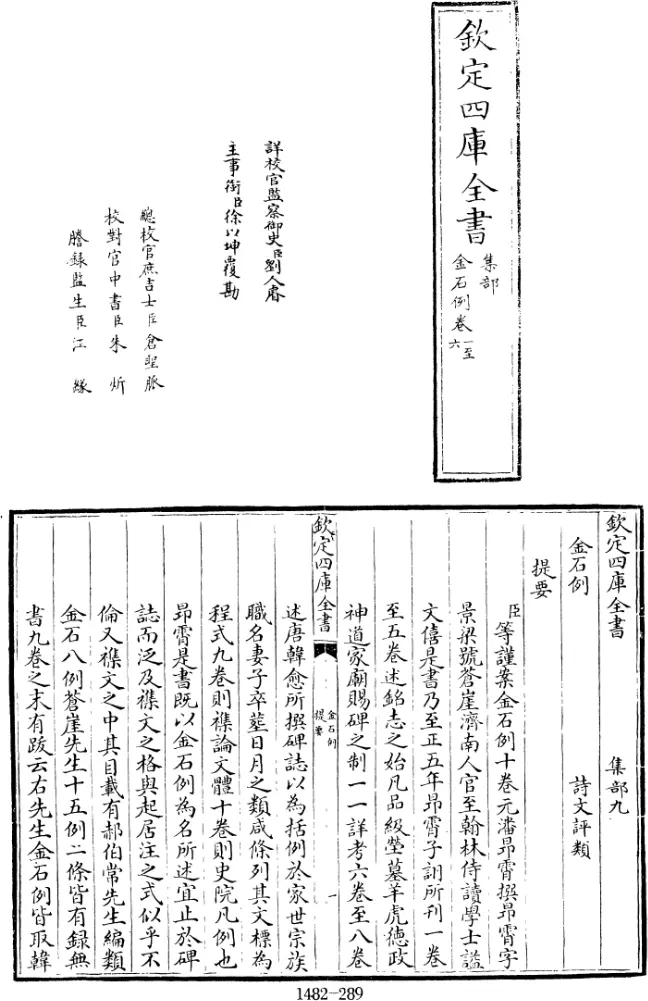 欽定四庫全書
集部
金石例卷一至六
詳校官監察御史臣劉人睿
主事銜臣徐以坤覆勘
總校官庶吉士臣倉聖脈
校對官中書臣朱炘
謄錄監生臣江緣
欽定四庫全書 集部九
金石例 詩文評類
提要
臣等謹案金石例十卷元潘昂霄撰昂霄字
景梁號蒼崖濟南人官至翰林侍讀學士諡
文僖是書乃至正五年昂霄子詡所刊一卷
至五卷述銘志之始凡品級塋墓羊虎德政
神道家廟賜碑之制一一詳考六卷至八卷
欽定四庫全書
金石例
提要
一
述唐韓愈所撰碑誌以為括例於家世宗族
職名妻子卒塟日月之類咸條列其文標為
程式九卷則襍論文體十卷則史院凡例也
昂霄是書既以金石例為名所述宜止於碑
誌而泛及襍文之格與起居注之式似乎不
倫又襍文之中其目載有郝伯常先生編類
金石八例蒼崖先生十五例二條皆有録無
書九卷之末有跋云右先生金石例皆取韓
1482-289